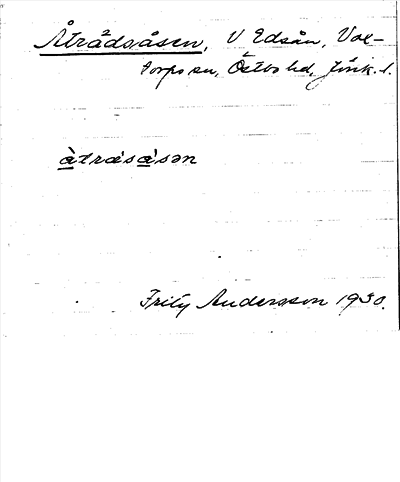 Åtrådsåsen, V Edsån, Vax-
torps sn, Östbo hd, Jönk. l.
àtrásásən
Fritz Andersson 1930.